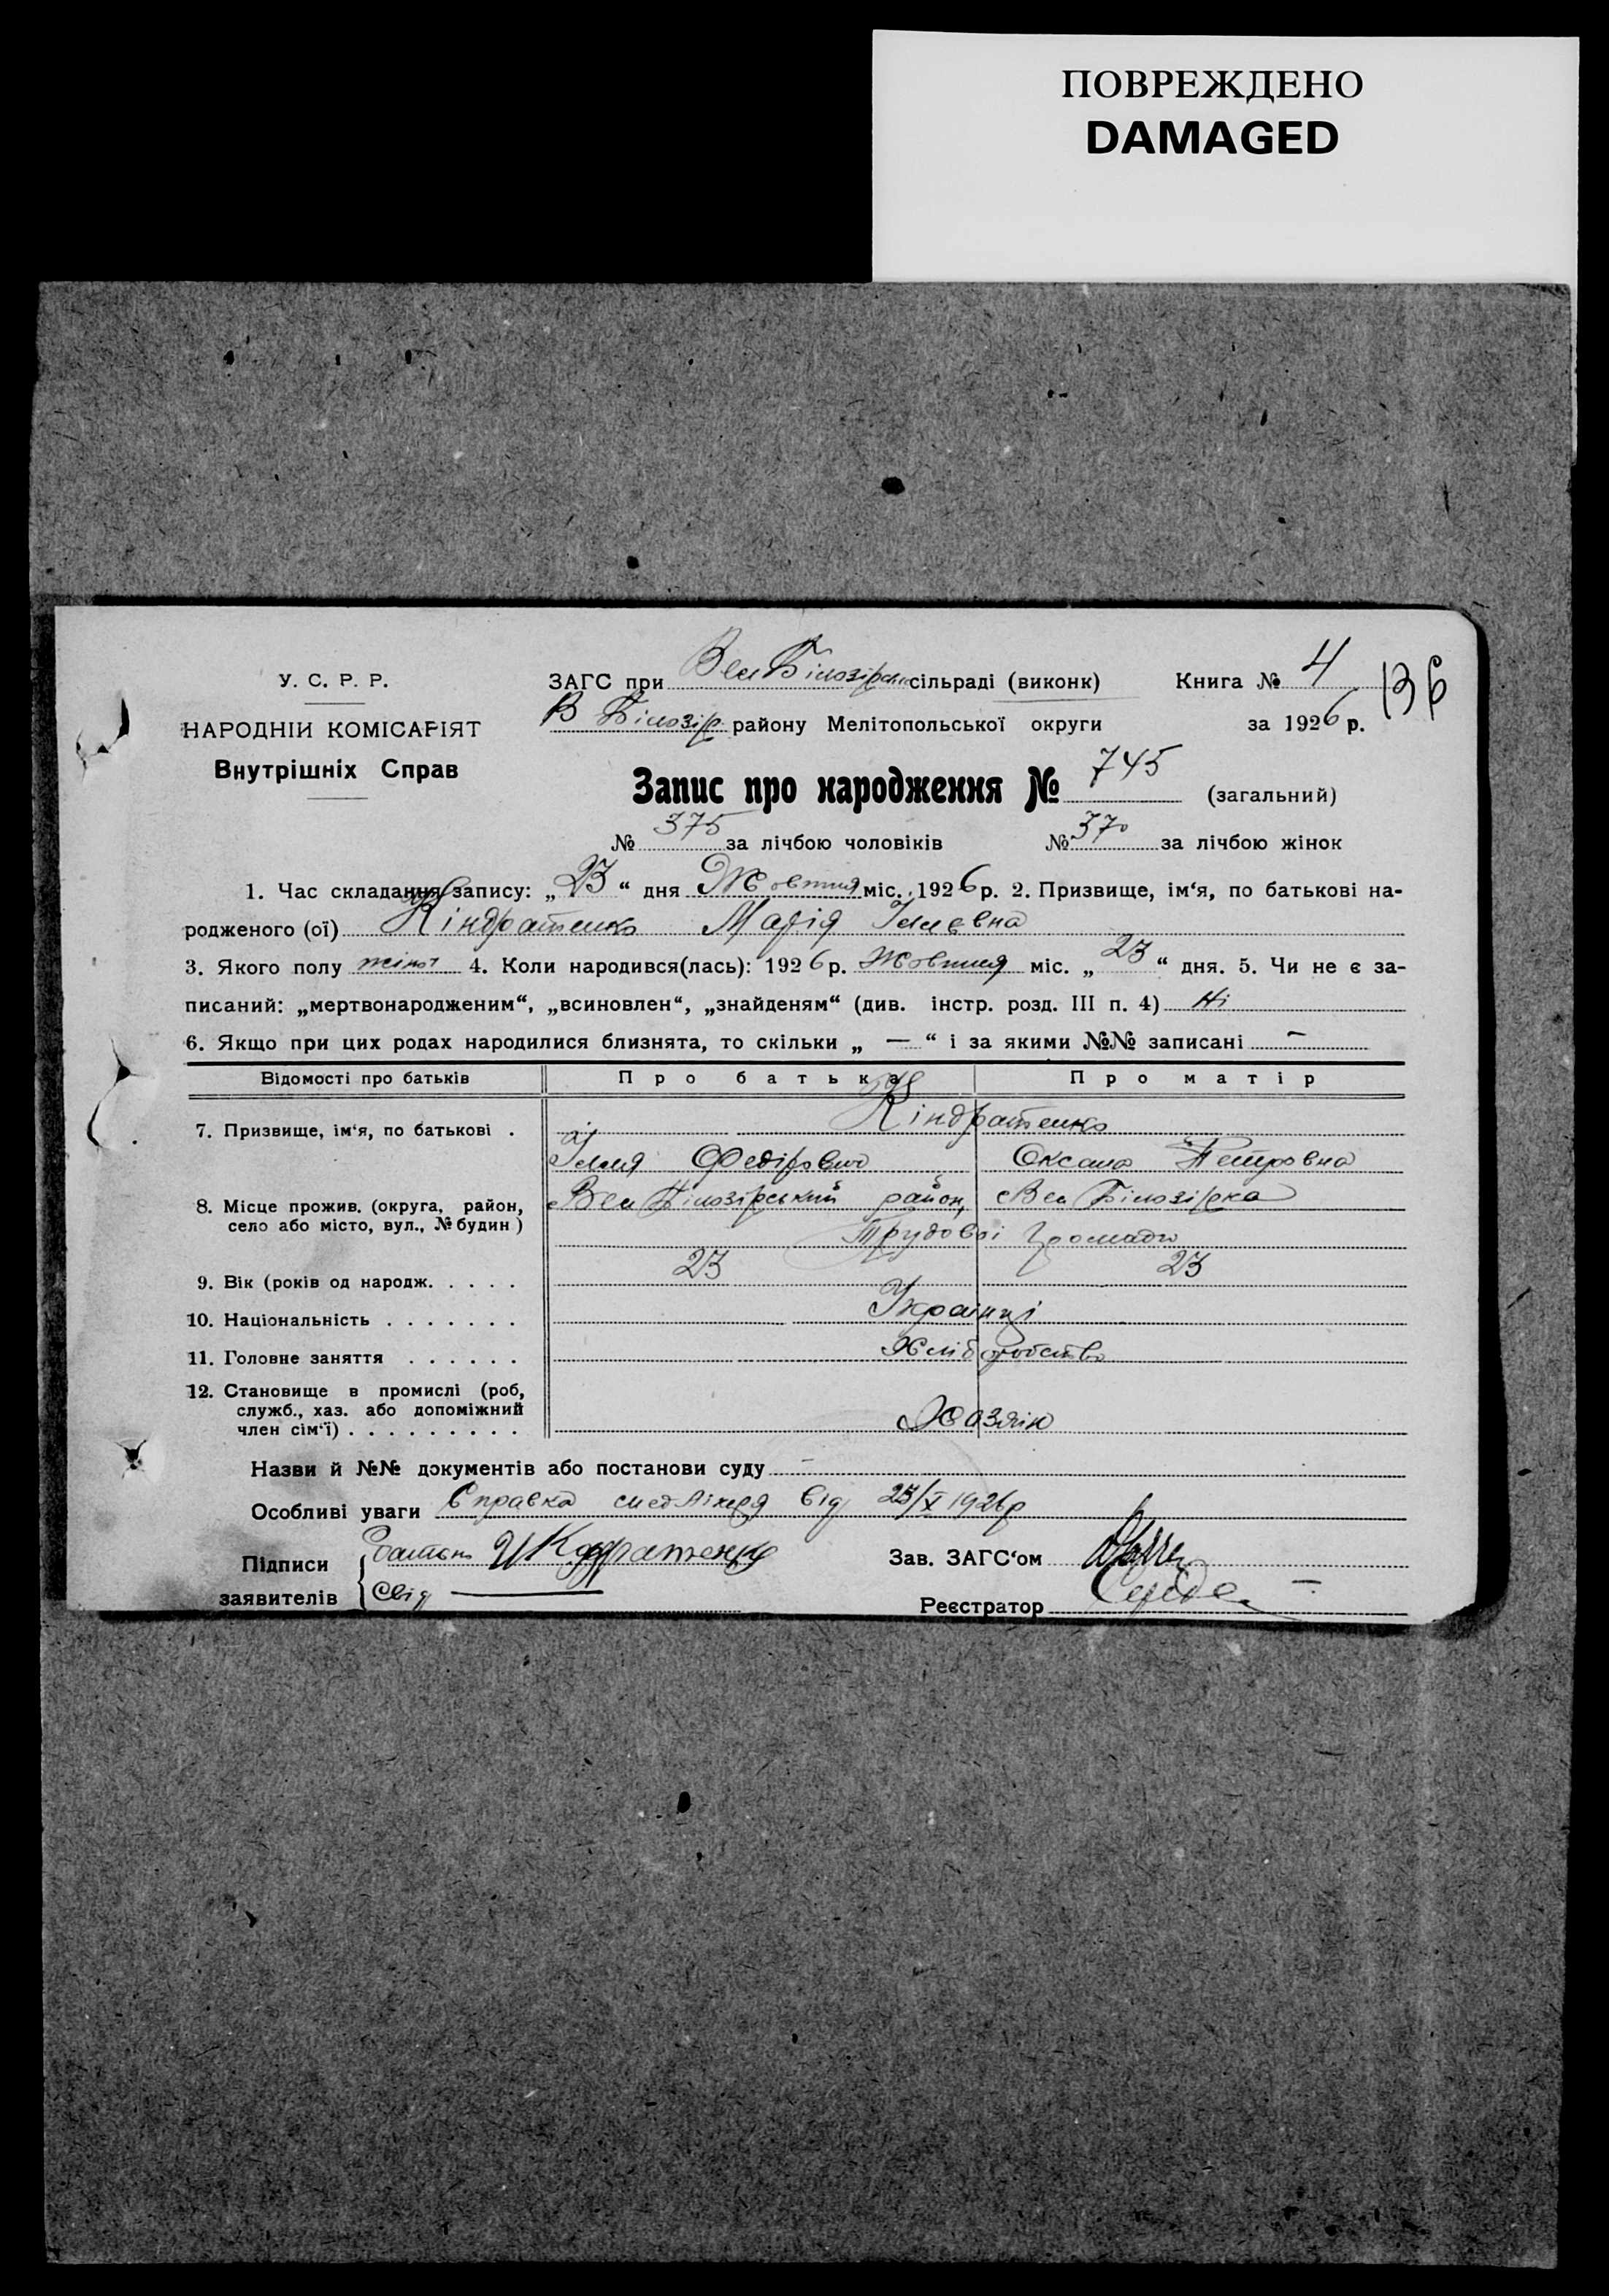 ПОВРЕЖДЕНО
DAMAGED
У. С. Р. Р.
НАРОДНІЙ КОМІСАРІЯТ
Внутрішніх Справ
ЗАГС при Вел Білозірск сільраді (виконк)
В Білозір. району Мелітопольської округи
Книга № 4
136
за 1926 р.
Запис про народження № 745 (загальний)
№ 375 за лічбою чоловіків № 370 за лічбою жінок
1. Час складання запису: „23“ дня Жовтня міс. 1926 р. 2. Призвище, ім‘я, по батькові на-
родженого (ої) Кіндратенко Марія Іллєвна
3. Якого полу жіноч 4. Коли народився(лась): 1926 р. Жовтня міс. „23“ дня. 5. Чи не є за-
писаний: „мертвонародженим“, „всиновлен“, „знайденям“ (див. інстр. розд. III п. 4) Ні
6. Якщо при цих родах народилися близнята, то скільки „ — “ і за якими №№ записані —
Відомості про батьків Про батька Про матір
7. Призвище, ім‘я, по батькові . Кіндратенко
Ілля Федірович Оксана Петровна
8. Місце прожив. (округа, район, село або місто, вул., № будин) Вел Білозірський район, Вел Білозірка
Трудової Громади
9. Вік (років од народж. . . . . 23 23
10. Національність . . . . . . . Українці
11. Головне заняття . . . . . . Хліборобство
12. Становище в промислі (роб,
служб., хаз. або допоміжний
член сім‘ї) . . . . . . . . . Хазяїн
Назви й №№ документів або постанови суду —
Особливі уваги Справка від 23/X 1926 р
Підписи
заявителів
Батько
Свід —
Зав. ЗАГС‘ом
Реєстратор